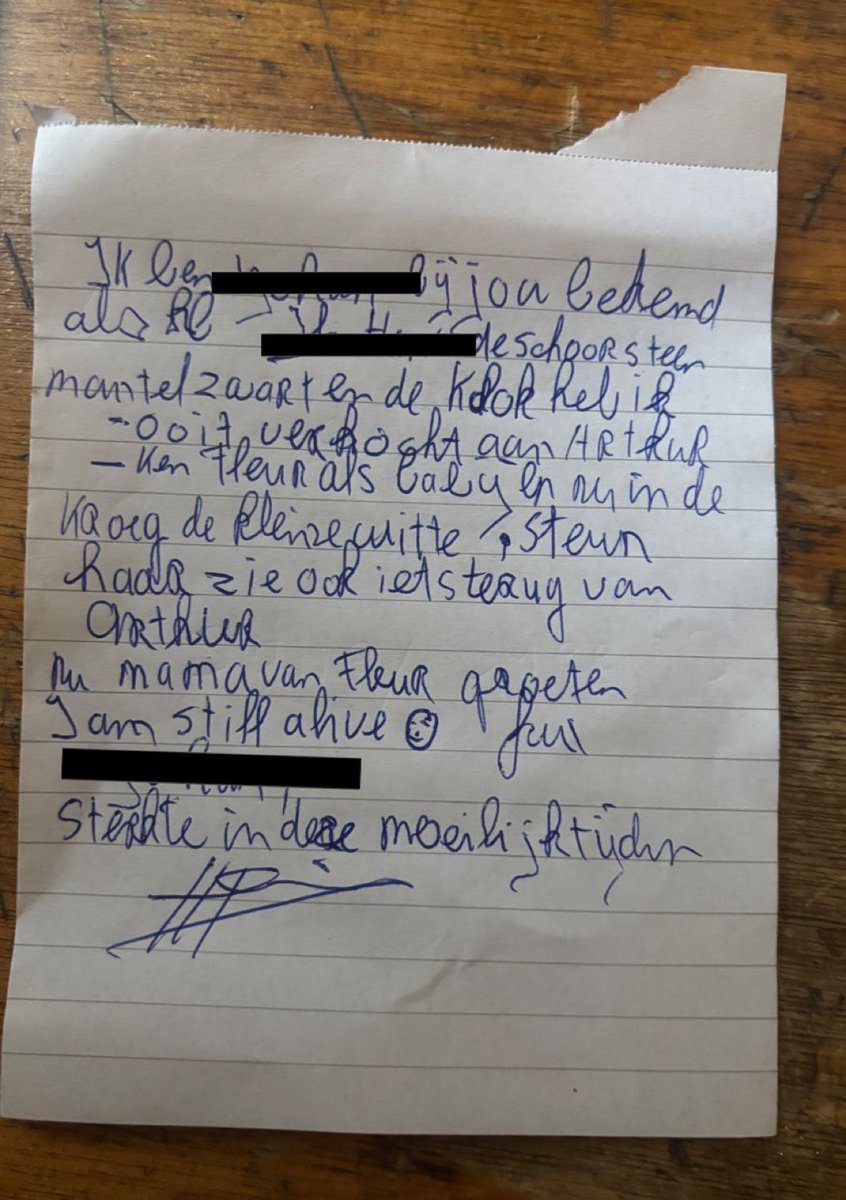 Ik ben bij jou bekend
als de schoorsteen
mantel zwart en de klok heb ik
- ooit verkocht aan ARTHUR
- Ken Fleur als baby en nu in de
kroeg de kleine witte, steun
haar zie ook iets terug van
ARTHUR
nu mama van Fleur groeten
I am still alive
sterkte in deze moeilijk tijden